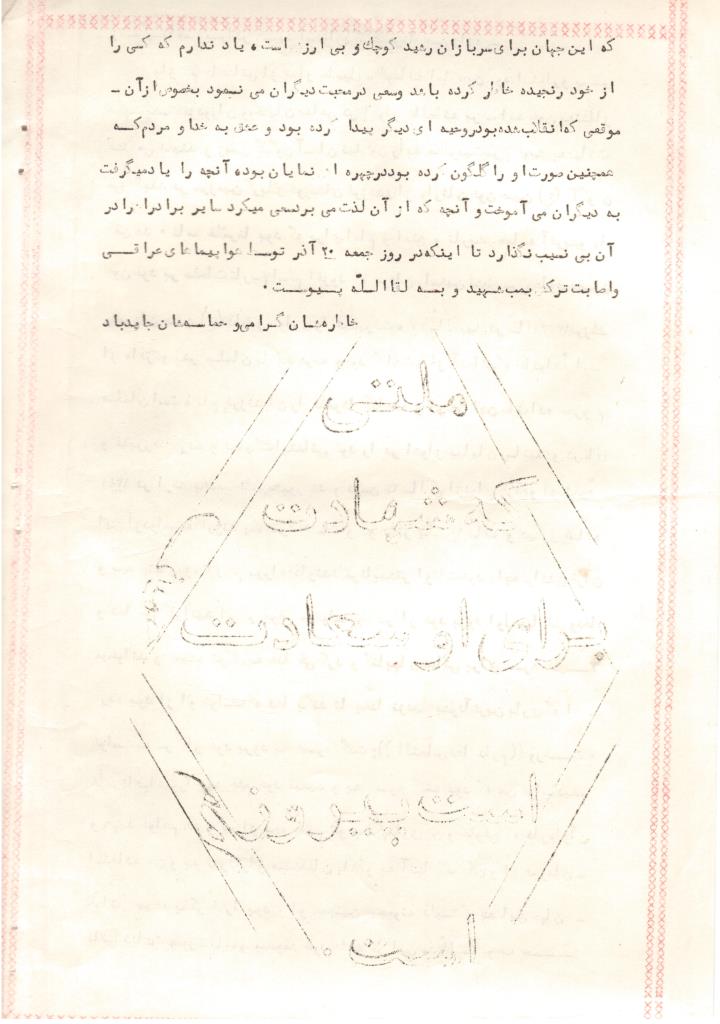 که این جهان برای سربازان رشید کوچک و بی ارزش است، یاد ندارم که کسی را
از خود رنجیده خاطر کرده باشد وسعی درمحبت دیگران می نمود بخصوص ازآن -
موقعی که انقلاب شده بود روحیه ای دیگر پیدا کرده بود و عشق به خدا و مردم که
همچنین صورت او را گلگون کرده بود درچهره اش نمایان بود، آنچه را یاد میگرفت
به دیگران می آموخت و آنچه که از آن لذت می برد سعی میکرد سایر برادران را در
آن بی نصیب نگذارد تا اینکه در روز جمعه ۲۰ آذر توسط هواپیماهای عراقی
و اصابت ترکش بمب شهید و به لقاء الله پیوست.
خاطره شان گرامی و حماسه شان جاید باد
ملتی
که شهادت
برای او سعادت
است پیروز
است.